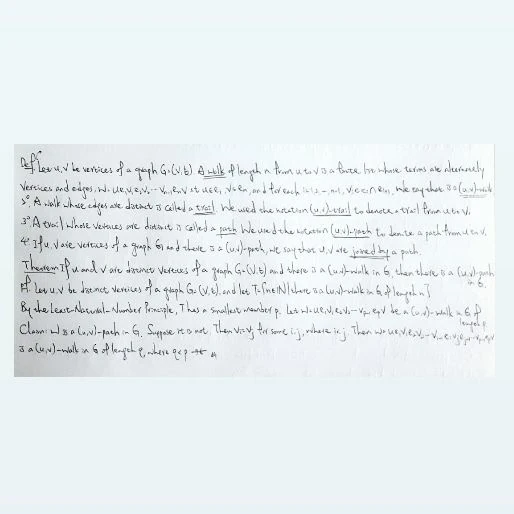 Def: 1° Let u, v be vertices of a graph G=(V,E). A walk of length n from u to v is a finite list whose terms are alternately
vertices and edges, W: ue₁v₁e₂v₂ ... vₙ₋₁eₙv st u∈e₁, v∈eₙ, and for each i=1,2,...,n-1, vᵢ∈eᵢ∩eᵢ₊₁. We say that is a (u,v)-walk
2° A walk whose edges are distinct is called a trail. We used the notation (u,v)-trail to denote a trail from u to v.
3° A trail whose vertices are distinct is called a path. We used the notation (u,v)-path to denote a path from u to v.
4° If u, v are vertices of a graph G and there is a (u,v)-path, we say that u, v are joined by a path.
Theorem If u and v are distinct vertices of a graph G=(V,E) and there is a (u,v)-walk in G, then there is a (u,v)-path
in G.
Pf. Let u, v be distinct vertices of a graph G=(V,E), and let T={n∈ℕ| there is a (u,v)-walk in G of length n}
By the Least-Natural-Number Principle, T has a smallest member p. Let W: ue₁v₁e₂v₂ ... vₚ₋₁eₚv be a (u,v)-walk in G of
length p
Claim: W is a (u,v)-path in G. Suppose it is not. Then vᵢ=vⱼ for some i,j, where i<j. Then W: ue₁v₁e₂v₂
is a (u,v)-walk in G of length q, where q<p